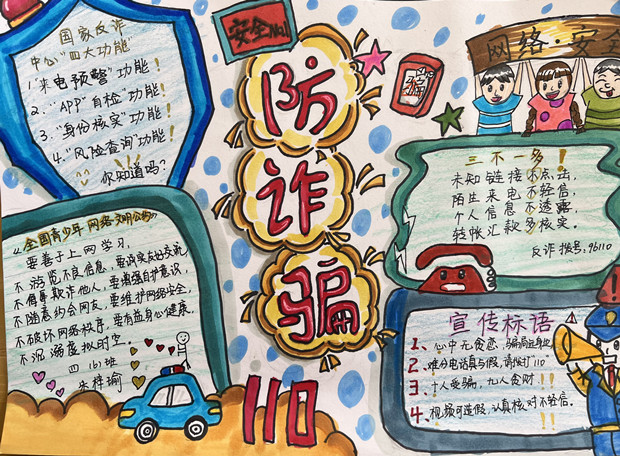 国家反诈
中心"四大功能"
1."来电预警"功能!
2."APP"自检"功能!
3."身份核实"功能!
4."风险查询"功能!
你知道吗?
《全国青少年网络文明公约》
要善于上网学习,
不浏览不良信息,要诚实友好交流,
不侮辱欺诈他人,要增强自护意识,
不随意约会网友,要维护网络安全,
不破坏网络秩序,要有益身心健康,
不沉溺虚拟时空.
四(6)班
朱梓瑜
安全No.1
防
诈
骗
110
网络·安全
三不一多!
未知链接不点击,
陌生来电不轻信,
个人信息不透露,
转帐汇款多核实.
反诈拨号:96110
宣传标语
1、心中无贪恋,骗局远身边
2、难分电话真与假,请拨打110
3、十人受骗,九人贪财!!!
4、视频可造假,认真核对不轻信.